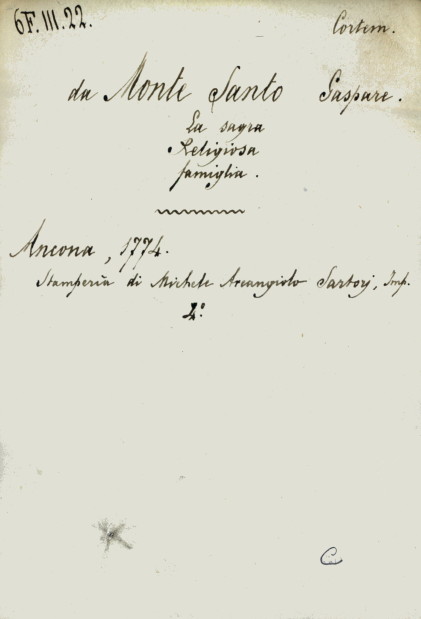 6F.III.22.
Cortem.
da Monte Santo Gaspare.
La sagra
Religiosa
famiglia.
Ancona, 1774.
Stamperia di Michele Arcangiolo Sartorj, Imp.
2°
C